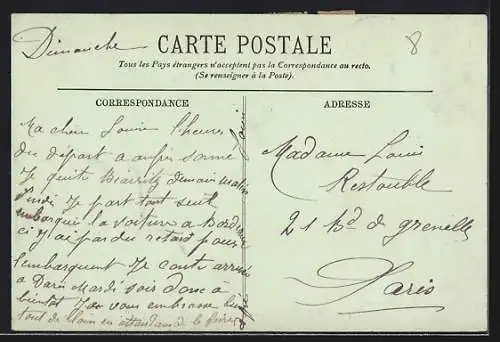 Dimanche
CARTE POSTALE
8
Tous les Pays étrangers n'acceptent pas la Correspondance au recto.
(Se renseigner à la Poste).
CORRESPONDANCE
Ma chère Louise l'heure
du départ a enfin sonné
Je quitte Biarritz demain matin
Lundi Je part tout seul
embarquer la voiture a Bordeaux
ci J'ai pas du retard pour
l'embarquement Je conte arriver
a Paris Mardi soir donc à
bientôt Je vous embrasse bien
tout de en attendant de le faire
ADRESSE
Madame Louis
Restouble
21 Bd de Grenelle
Paris